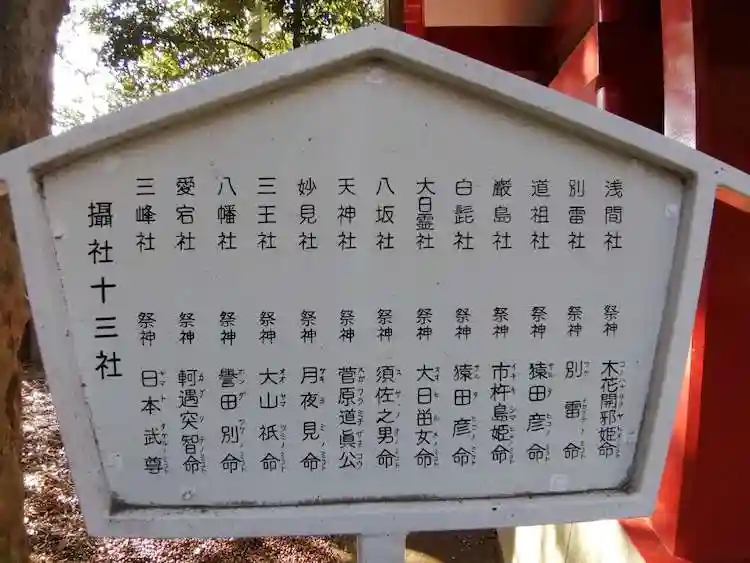 浅間社 祭神 木花開邪姫命
別雷社 祭神 別雷命
道祖社 祭神 猿田彦命
巌島社 祭神 市杵島姫命
白髭社 祭神 猿田彦命
大日霊社 祭神 大日孁女命
八坂社 祭神 須佐之男命
天神社 祭神 菅原道眞公
妙見社 祭神 月夜見命
三王社 祭神 大山祇命
八幡社 祭神 誉田別命
愛宕社 祭神 軻遇突智命
三峰社 祭神 日本武尊
攝社十三社